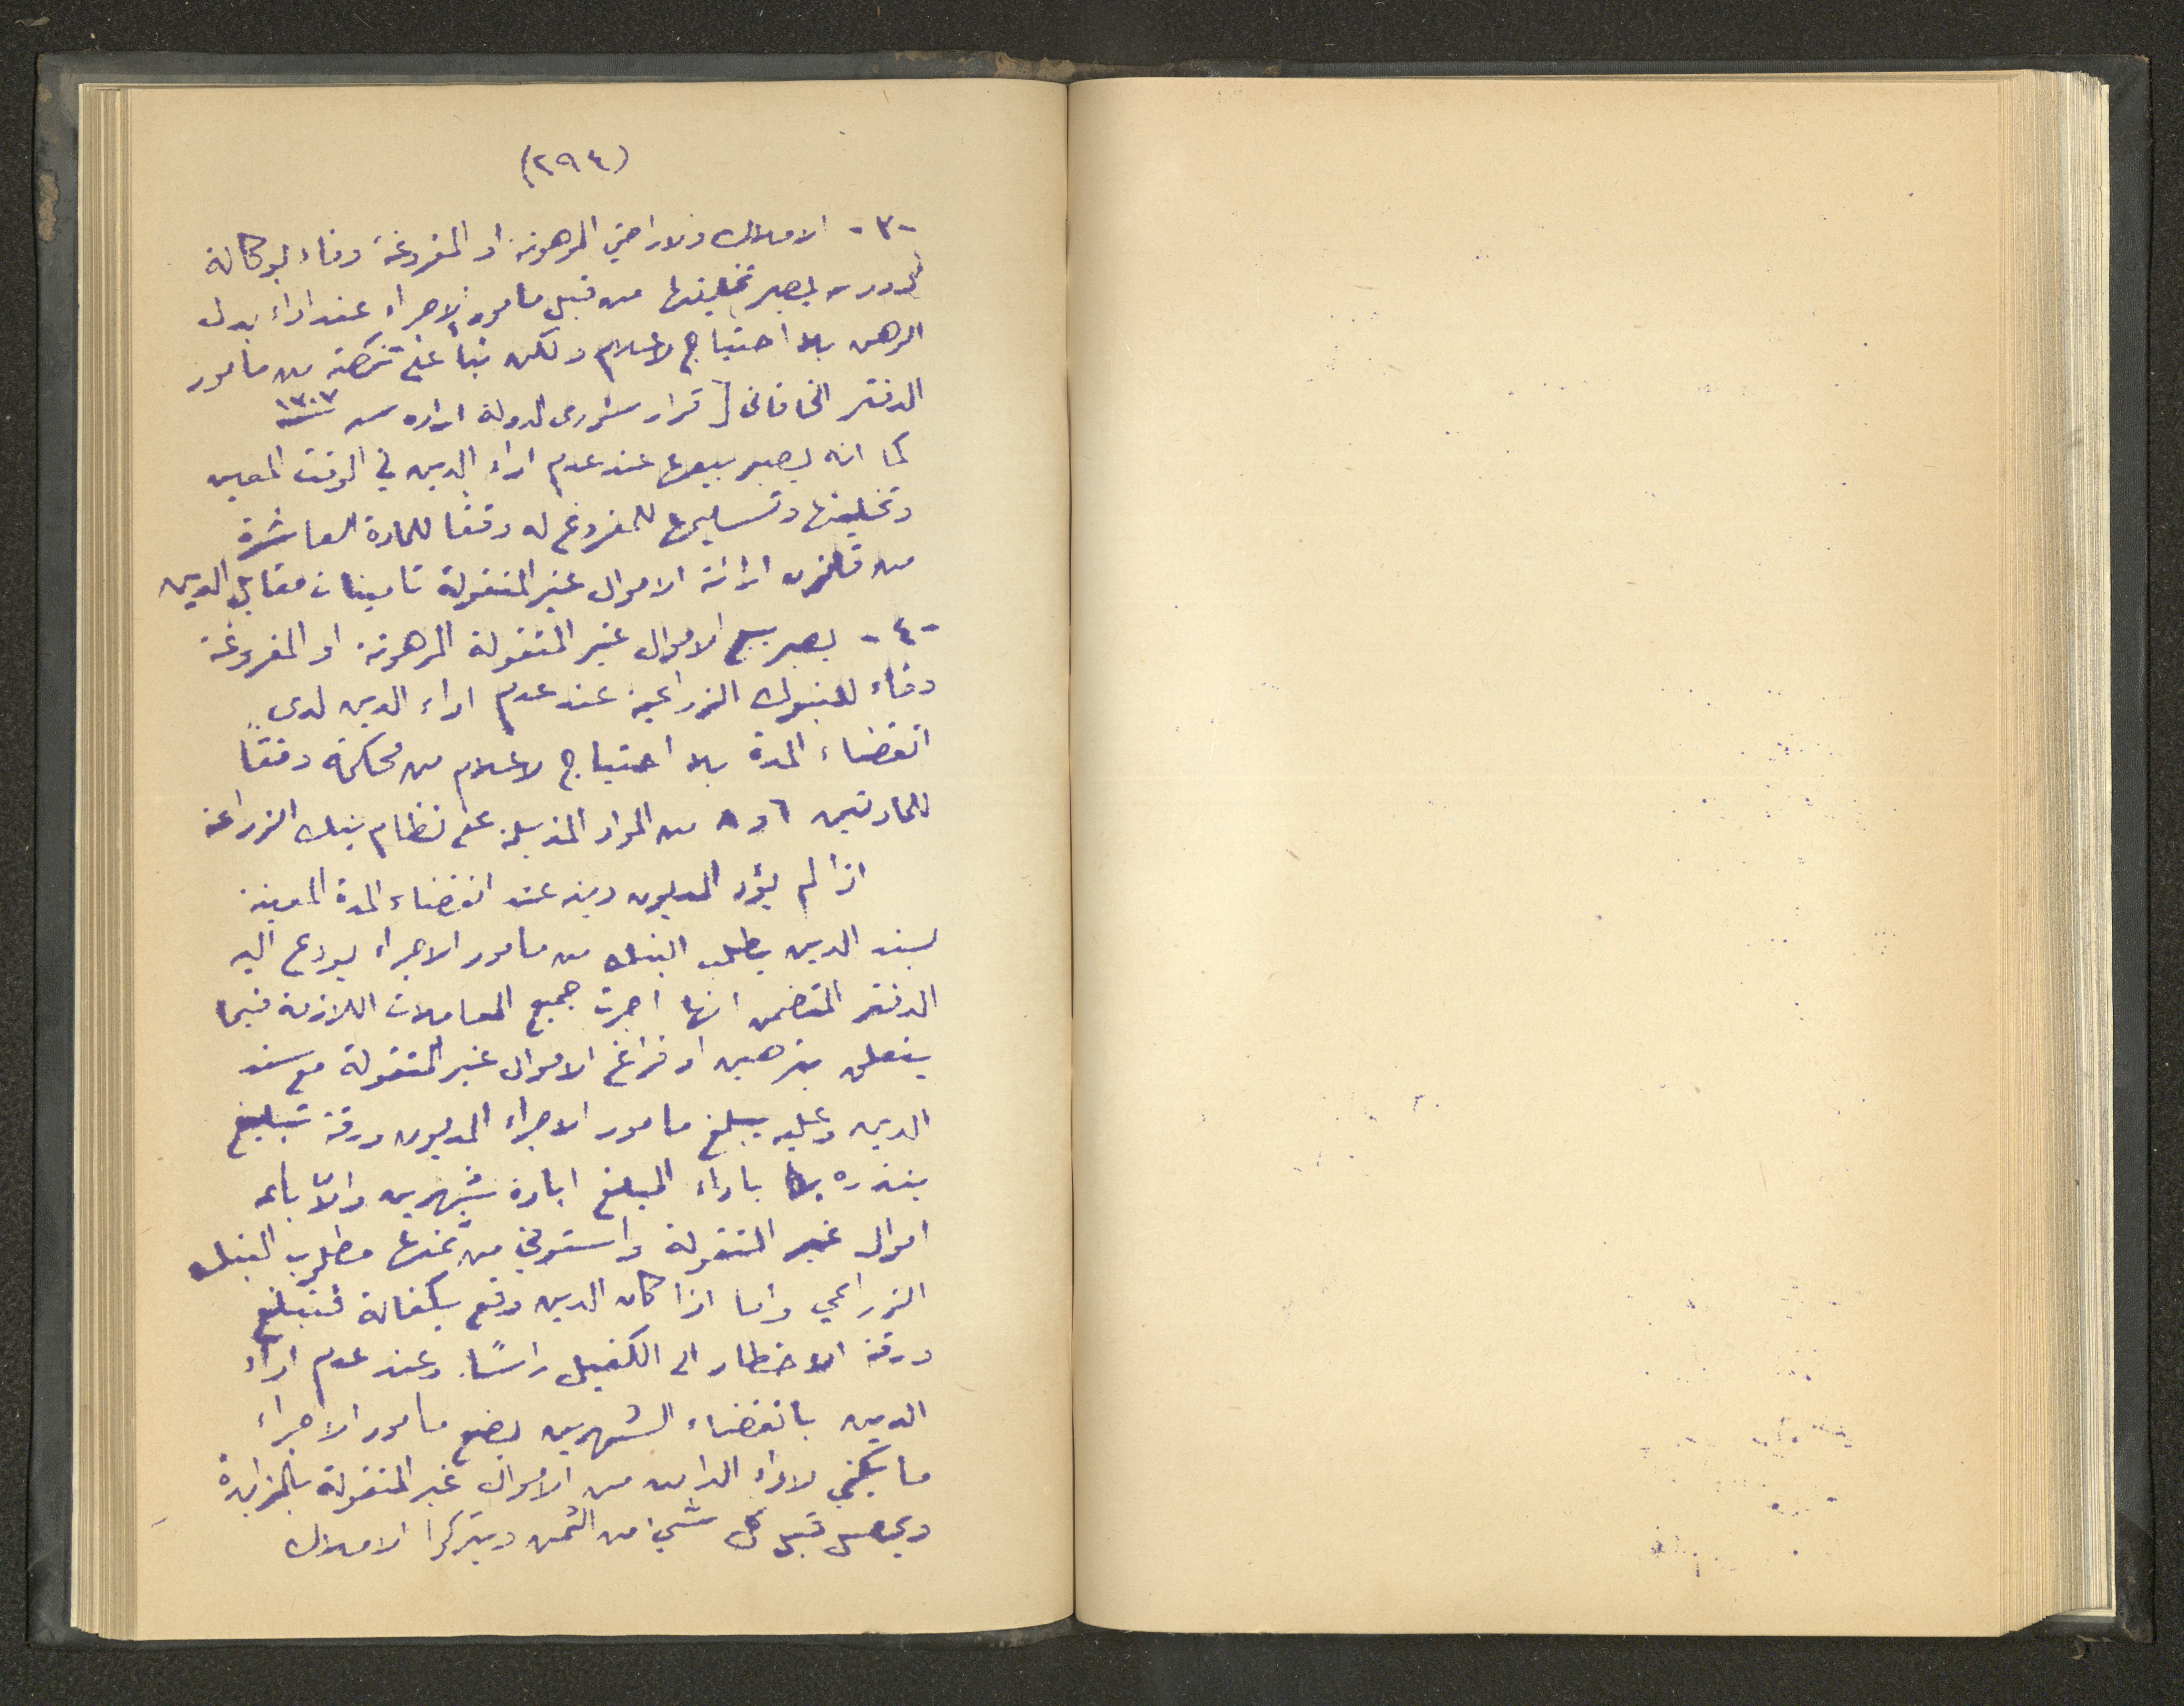 (٢٩٤)
-٣- الاملاك والاراضي المرهونة او المفروغة وفاء لوكالة
الدور يصير تخليتها من قبل مامور الاجراء عند اداء بدل
الرهن بلا احتياج لاعلام ولكن بناً على تذكرة من مامور
الدفتر الخاقاني [قرار شورى الدولة اداره سـ ١٣٠٧
كما انه يصير بيعها عند عدم اداء الدين في الوقت المعين
وتخليتها وتسليمها للمفروغ له وفقا للمادة العاشرة
من قانون ارائة الاموال غير المنقولة تامينات مقابل الدين
-٤- يصير بيع الاموال غير المنقولة المرهونة او المفروغة
وفاء للبنوك الزراعية عند عدم اداء الدين لدى
انقضاء المدة بلا احتياج لاعلام من محكمة وفقاً
للمادتين ٦ و ٨ من المواد المذيلة على نظام بنك الزراعة
اذا لم يؤد المديون دينه عند انقضاء المدة المعينة
لسند الدين يطلب البنك من مامور الاجراء يودع اليه
الدفتر المتضمن انها اجرت جميع المعاملات اللازمة فيما
يتعلق بترهين او فراغ الاموال غير المنقولة مع سند
الدين وعليه يبلغ مامور الاجراء المديون ورقة تبليغ
ينذره باداء المبلغ ابادة شهرين والاّ باع
اموال غير المنقولة واستوفي من ثمنها مطلوب البنك
الزراعي واما اذا كان الدين وقع بكفالة فتبلغ
ورقة الاخطار الى الكفيل راسًا. وعند عدم اداء
الدين بانقضاء الشهرين يضع مامور الاجراء
ما يكفي لاداء الداين من الاموال غير المنقولة بالمزايدة
ويحصل قبل كل شيء من الثمن ويتركوا الاملاك